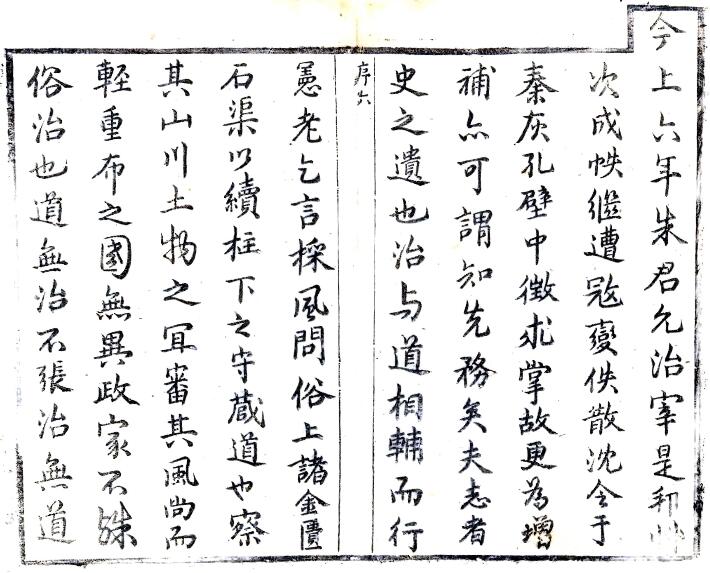 今上六年朱君允治宰是邦
次成帙繼遭寇變佚散沈令于
秦灰孔壁中徵求掌故更為增
補亦可謂知先務矣夫志者
史之遺也治与道相輔而行
序六
憲老乞言採風問俗上諸金匱
石渠以續柱下之守蔵道也察
其山川土物之宜審其風尚而
輕重布之國無異政家不殊
俗治也道無治不張治無道